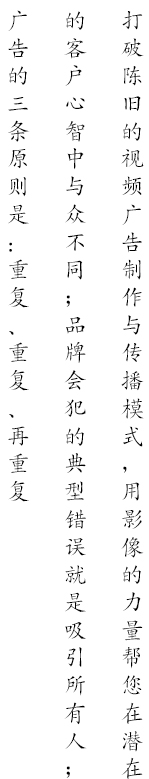 打破陈旧的视频广告制作与传播模式，用影像的力量帮您在潜在
的客户心智中与众不同；品牌会犯的典型错误就是吸引所有人；
广告的三条原则是：重复、重复、再重复